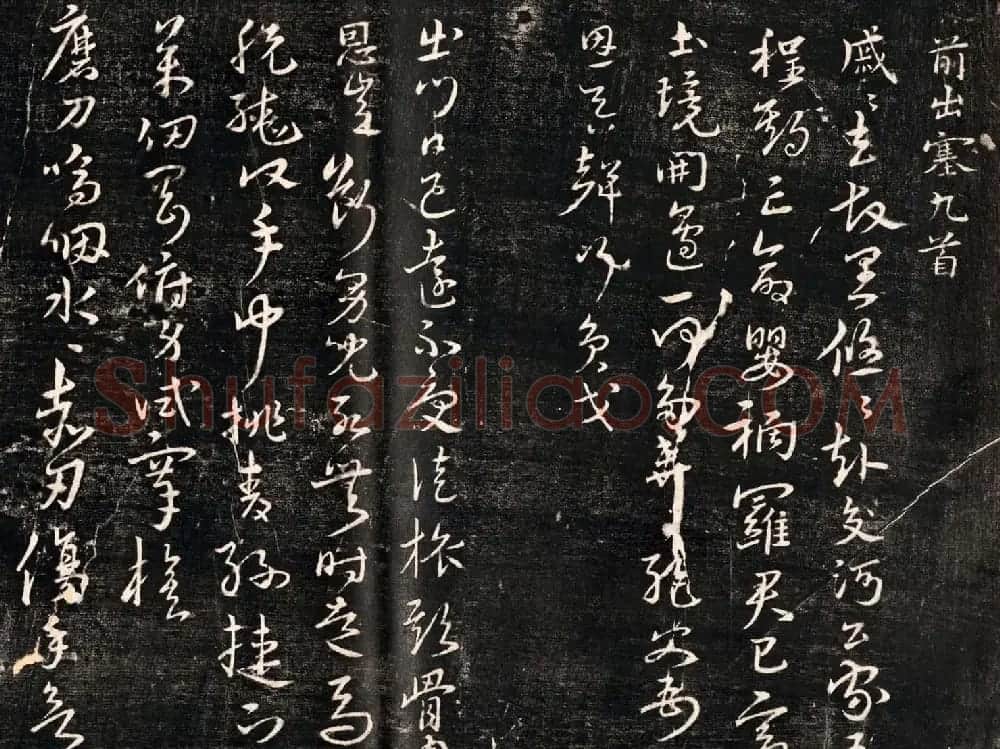 前出塞九首
戚〻去故里悠〻赴交河公家
程期亡命嬰禍羅君已富
土境開邊一何多棄絕父母
恩吞聲行負戈
出門日已遠不受徒旅欺骨
恩豈斷男兒死無時走馬
脫轡頭手中挑青絲捷下
萬仞岡俯身試搴旗
磨刀嗚咽水〻赤刃傷手欲
Shufaziliao.COM